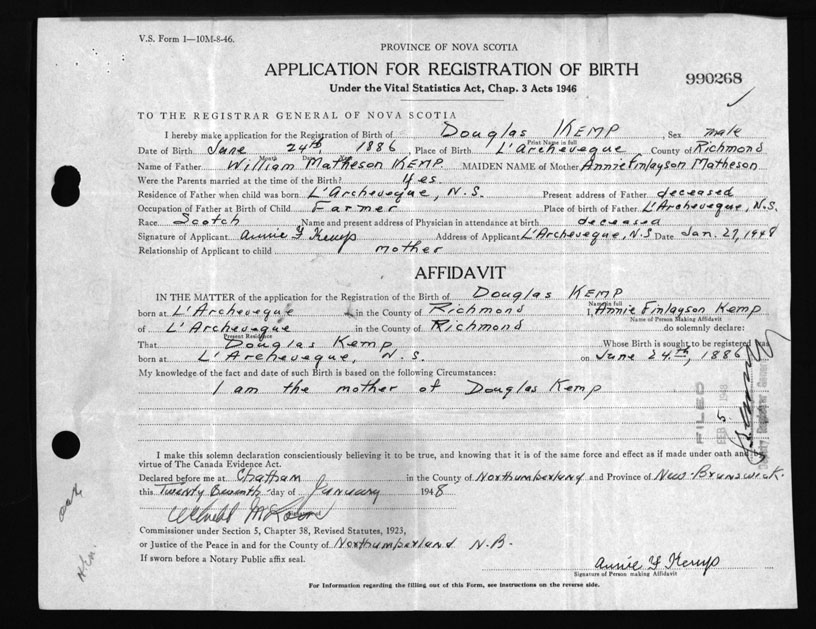 V.S. Form 1—10M-8-46.
PROVINCE OF NOVA SCOTIA
APPLICATION FOR REGISTRATION OF BIRTH
990268
Under the Vital Statistics Act, Chap. 3 Acts 1946
TO THE REGISTRAR GENERAL OF NOVA SCOTIA
I hereby make application for the Registration of Birth of Douglas KEMP, Sex male
Print Name in full
Date of Birth June 24th, 1886, Place of Birth L'Archeveque County of Richmond
Month Day
Name of Father William Matheson KEMP. MAIDEN NAME of Mother Annie Finlayson Matheson
Were the Parents married at the time of the Birth? Yes.
Residence of Father when child was born L'Archeveque, N.S. Present address of Father deceased
Occupation of Father at Birth of Child Farmer Place of birth of Father L'Archeveque, N.S.
Race Scotch Name and present address of Physician in attendance at birth deceased
Signature of Applicant Annie F Kemp Address of Applicant L'Archeveque, N.S Date Jan. 27, 1948
Relationship of Applicant to child mother
AFFIDAVIT
IN THE MATTER of the application for the Registration of the Birth of Douglas KEMP
Name in full
born at L'Archeveque in the County of Richmond I, Annie Finlayson Kemp
Name of Person Making Affidavit
of L'Archeveque in the County of Richmond do solemnly declare:
Present Residence
That Douglas Kemp, Whose Birth is sought to be registered was
born at L'Archeveque, N.S. on June 24th, 1886
My knowledge of the fact and date of such Birth is based on the following Circumstances:
I am the mother of Douglas Kemp
FILED
FEB 5 1948
I make this solemn declaration conscientiously believing it to be true, and knowing that it is of the same force and effect as if made under oath and by
virtue of The Canada Evidence Act.
Declared before me at Chatham in the County of Northumberland and Province of New-Brunswick.
this Twenty Seventh day of January 1948
Commissioner under Section 5, Chapter 38, Revised Statutes, 1923,
or Justice of the Peace in and for the County of Northumberland N.B.
If sworn before a Notary Public affix seal.
Annie F Kemp
Signature of Person making Affidavit
For Information regarding the filling out of this Form, see instructions on the reverse side.